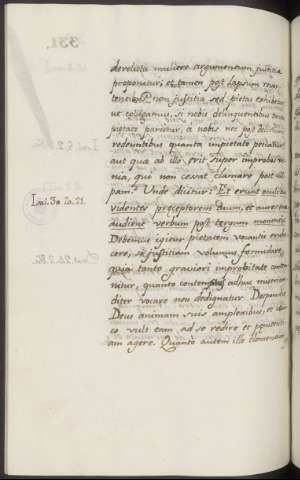 derelicta muliere argumentum, justitia
proponatur; et tamen post lapsum rever-
tentibus non justitia sed pietas exhibetur,
ut colligamus, si nobis delinquentibus
pietas paritur, a nobis nec post delictum
redeuntibus quanta impietate peccatur:
aut quæ ab illo erit super improbis ve-
nia, qui non cessat clamare post cul-
pam? Unde dicitur: Et erunt oculi tui
videntes præceptorem tuum, et aures tuæ
audient verbum post tergum monentis.
Debemus igitur pietatem vocantis erubes-
cere, si justitiam volumus formidare,
quia tanto graviori improbitate contem-
nitur, quanto contemptus adhuc miseri-
diter vocare non dedignatur.
Deus animam suis amplexibus, et id-
co vult eam ad se redire et pœnitenti-
am agere. Quantò autem illo
Isai. 30. 20. 21.
331.